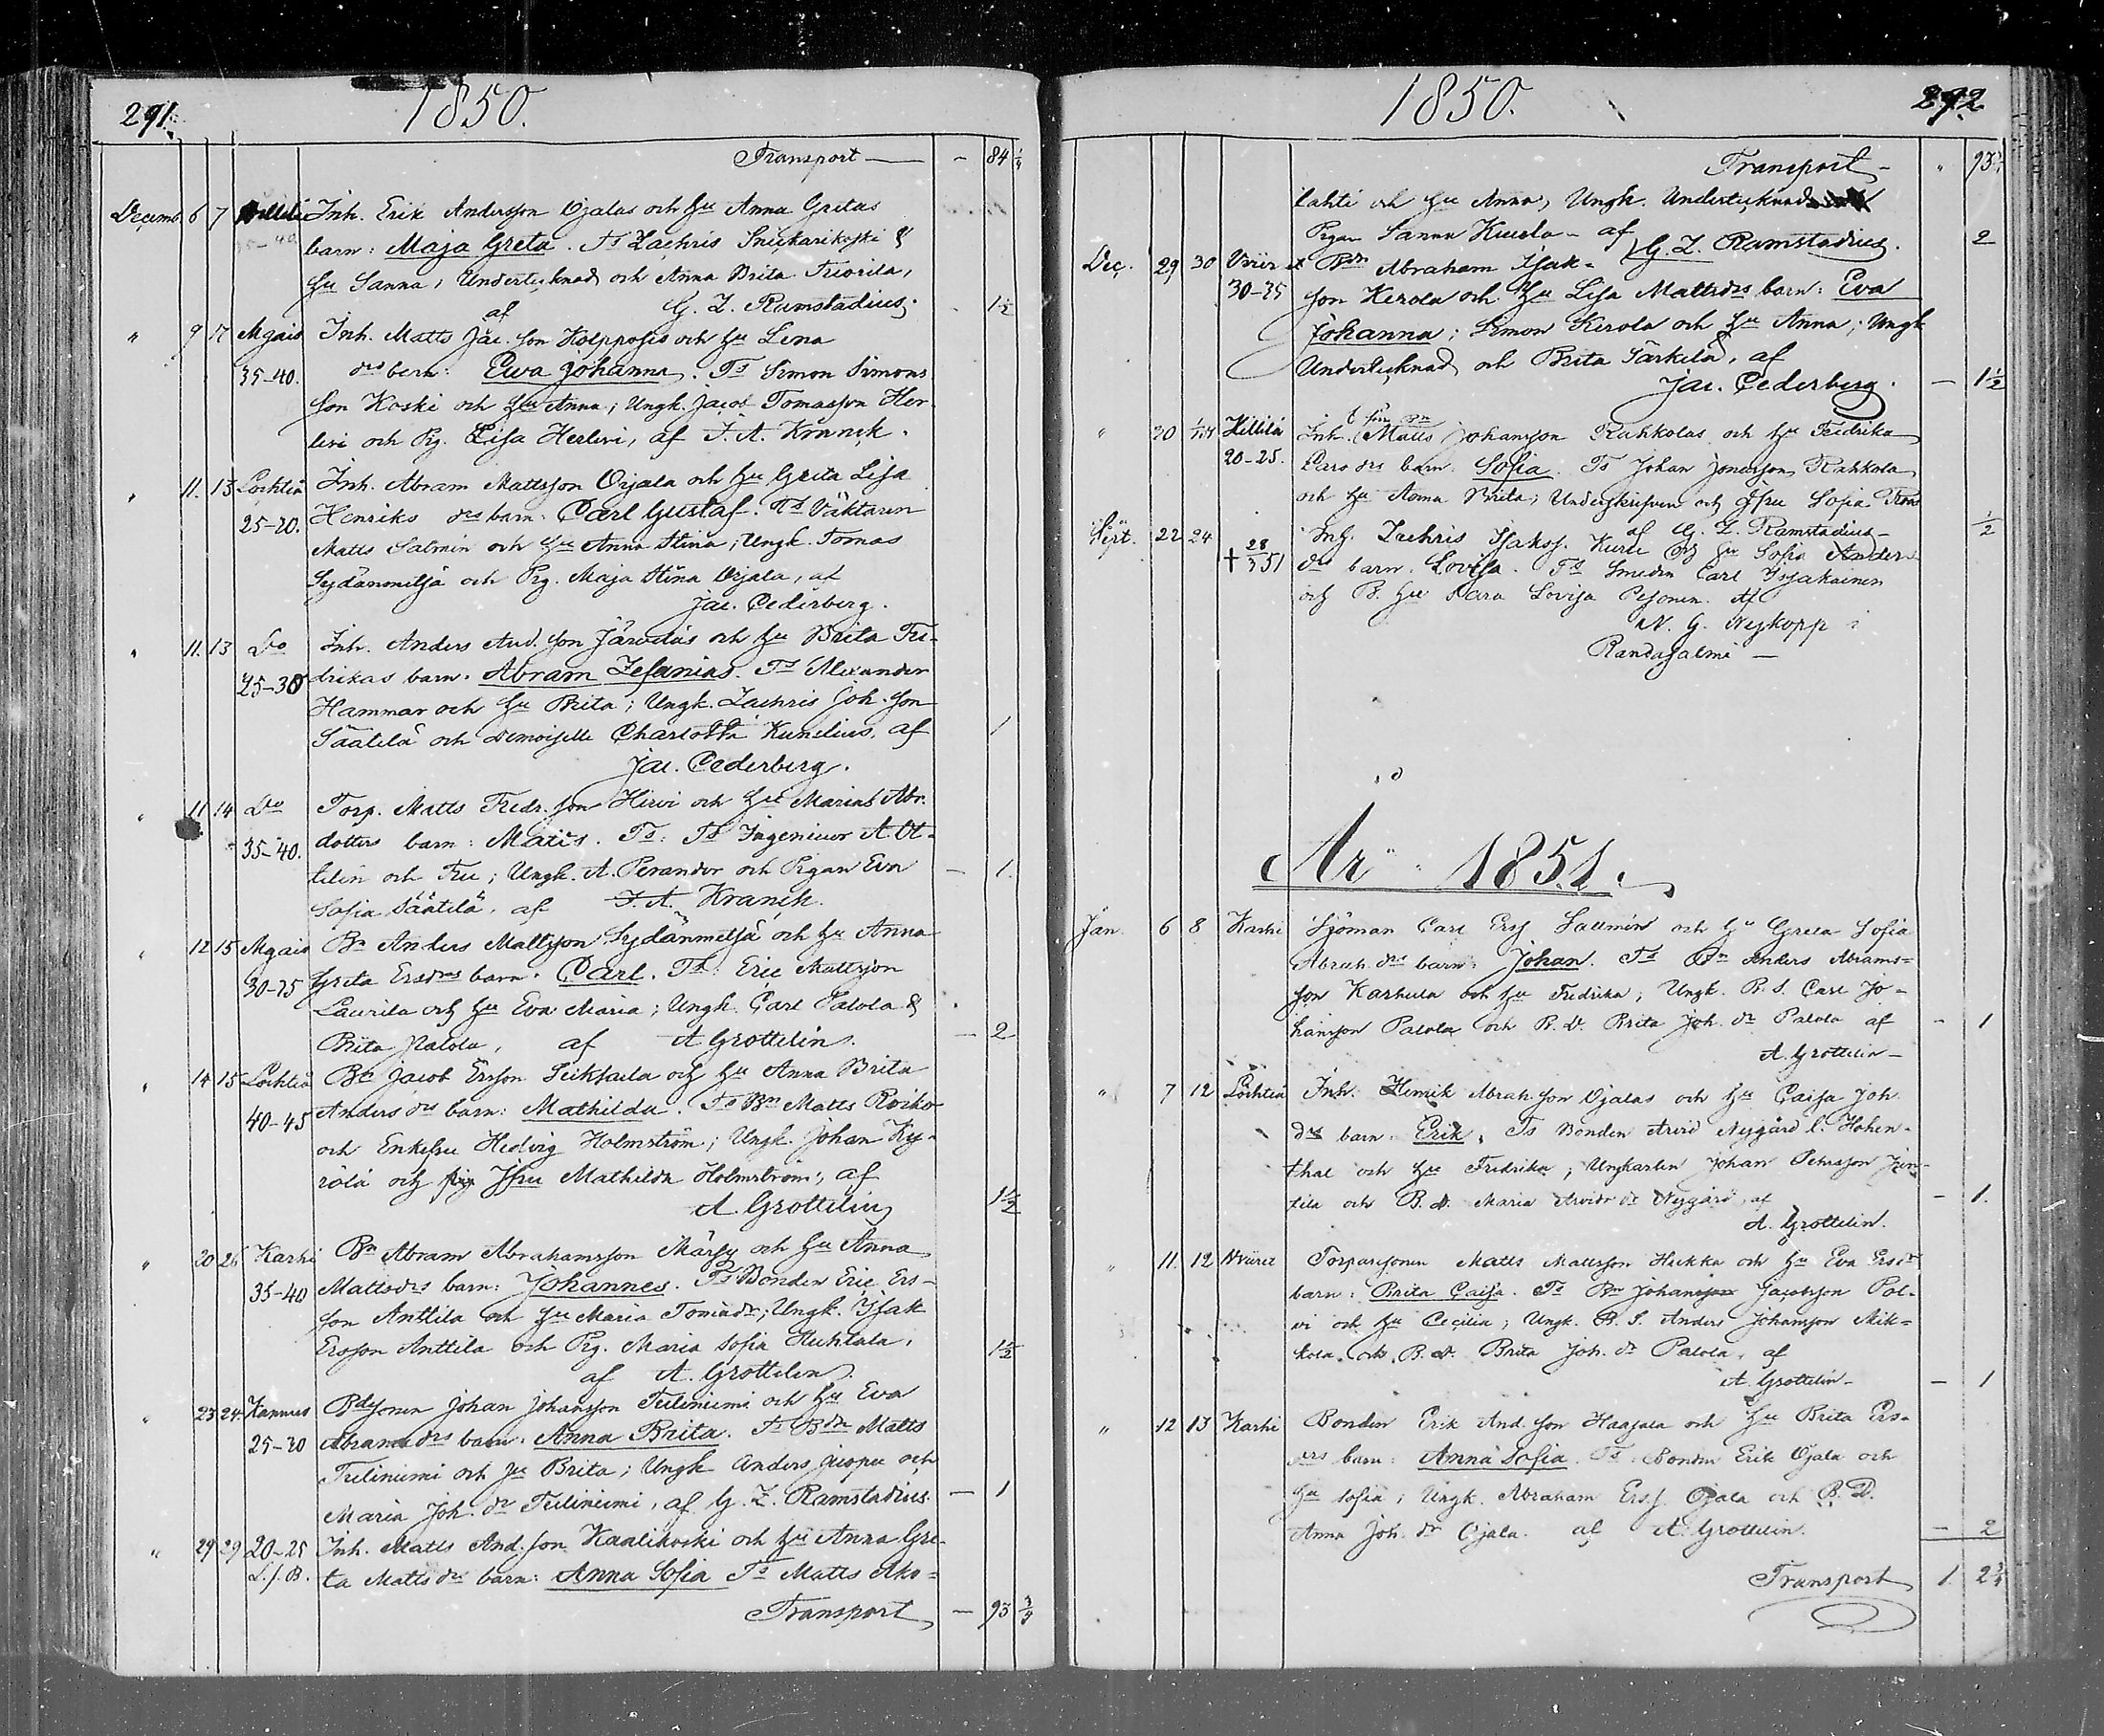 291.
1850.
Transport — - 84 1/4
Decemb. 6 7 Inh. Erik Andersson Ojalas och Hu Anna Gretas
35-40 barn: Maja Greta. Ts Zachris Snickarikoski &
Hu Sanna; Undertecknad och Anna Brita Friorila,
af G. Z. Ramstadius. - 1½
" 9 17 Algais Inh. Matts Jac. son Kolpposis och Hu Lena
35-40. drs barn: Ewa Johanna. Ts Simon Simons
son Koski och Hu Anna; Ungk. Jacob Tomasson Her-
levi och Pig. Lisa Herlevi, af F. A. Kranck.
" 11. 13 Lochteå Inh. Abram Mattsson Orjala och Hu Greta Lisa
25-20. Henriks drs barn: Carl Gustaf. Ts Väktaren
Matts Salmin och Hu Anna Stina; Ungk. Tomas
Sydänmetsä och Pig. Maja Stina Orjala, af
Jac. Cederberg.
" 11. 13 Do Inh. Anders And. son Järveläs och Hu Brita Fre-
25-30 drikas barn. Abram Zefanias. Ts Alexander
Hammar och Hu Brita; Ungk. Zachris Joh. son
Säätelä och Demoiselle Charlotta Kunelius, af 1
Jac. Cederberg.
" 11 14 Do Torp. Matts Fredr. son Hirvi och Hu Marias Abr.
35-40. dotters barn: Matts. Ts: Ts Ingenieur A. Ot-
telin och Fru; Ungk. A. Perander och Pigan Eva — 1.
Sofia Säätelä, af F. A. Kranck.
" 12 15 Algais Bn Anders Mattsson Sydänmetsä och Hu Anna
30-35 Greta Ersdrs barn. Carl. Ts: Eric Mattsson
Laurila och Hu Eva Maria; Ungk. Carl Palola &
Brita Palola, af A Grottelin. — 2
" 14 15 Lochteå Bn Jacob Ersson Tuiksala och Hu Anna Brita
40-45 Anders drs barn: Mathilda. Ts Bn Matts Roiko
och Enkefru Hedvig Holmström; Ungk. Johan Ky-
rölä och Jfru Mathilda Holmström; af
A. Grottelin 1½
" 20 26 Karhi Bn Abram Abrahamsson Märsy och Hu Anna
35-40 Mattsdrs barn: Johannes. Ts Bonden Eric Ers-
son Anttila och Hu Maria Tomadr; Ungk. Isak
Ersson Anttila och Pig. Maria Sofia Huhtala, 1½
af A. Grottelin
" 23 24 Kannus Bdesonen Johan Johansson Tulinimi och Hu Eva
25-30 Abramsdrs barn. Anna Brita. Ts Bdn Matts
Tuliniemi och Hu Brita; Ungk Anders Juopu och
Maria Joh. dr Tuliniemi, af G. Z. Ramstadius. — 1
" 29 29 20-25 Inh. Matts And. son Kaalikoski och Hu Anna Gre-
L. f. B. ta Mattsdrs barn: Anna Sofia Ts Matts Aho-
Transport — 93 3/4
1850.
292
Transport - " 93 3/4
lahti och Hu Anna, Ungk. Undertecknad
Pigan Sanna Kuusla - af G. Z. Ramstadius. 2
Dec. 29 30 Bdn Abraham Isak-
30-35 son Kerola och Hu Lisa Mattsdrs barn: Eva
Johanna; Simon Kerola och Hu Anna; Ungk
Undertecknad och Brita Särkelä, af
Jac. Cederberg. — 1½
" 20 Killilä Inh. Matts Johansson Rahkolas och Hu Fredrika
20-25. Cars drs barn. Sofia. Ts Johan Jonasson Rahkola
och Hu Anna Brita; Underskrifven och Jfru Sofia
af G. Z. Ramstadius - ½
Sept. 22 24 Inh. Zachris Isaks. Kuru och Hu Sofia Anders
† 28/3 51 dr barn. Lovisa. Ts Smeden Carl
och B. Hu Sara Lovisa Pesonen. Af
N. G. Nykopp i
Randasalmi —
År 1851.
Jan. 6 8 Karhi Sjöman Carl Ersf Sallmin och Hu Greta Sofia
Abrah. drs barn: Johan. Ts Bn Anders Abrams-
son Karhula och Hu Fredrika; Ungk. B. S. Carl Jo-
hansson Palola och B. D. Brita Joh. dr Palola af — 1
A. Grottelin —
" 7 12 Lochteå Inh. Henrik Abrah. son Ojalas och Hu Caisa Joh.
drs barn. Erik. Ts Bonden Arvid Nygård l. Hohen-
thal och Hu Fredrika; Ungkarlen Johan Petersson Jun-
tila och B. D. Maria Arvids dr Nygård, af — 1.
A. Grottelin.
" 11. 12 Torparsonen Matts Mattsson Hukka och Hu Eva Ersdr
barn: Brita Caisa. Ts Bn Johansson Jacobsson Pol-
vi och Hu Cecilia; Ungk. B. S. Anders Johansson Mik-
kola, och B. D. Brita Joh. dr Palola, af
A. Grottelin - — 1
" 12 13 Karhi Bonden Erik And. son Haapala och Hu Brita Ers-
drs barn: Anna Sofia. Ts: Bonden Erik Ojala och
Hu Sofia; Ungk. Abraham Ersf. Ojala och B. D.
Anna Joh. dr Ojala. af A. Grottelin. — 2
Transport 1. 2 3/4